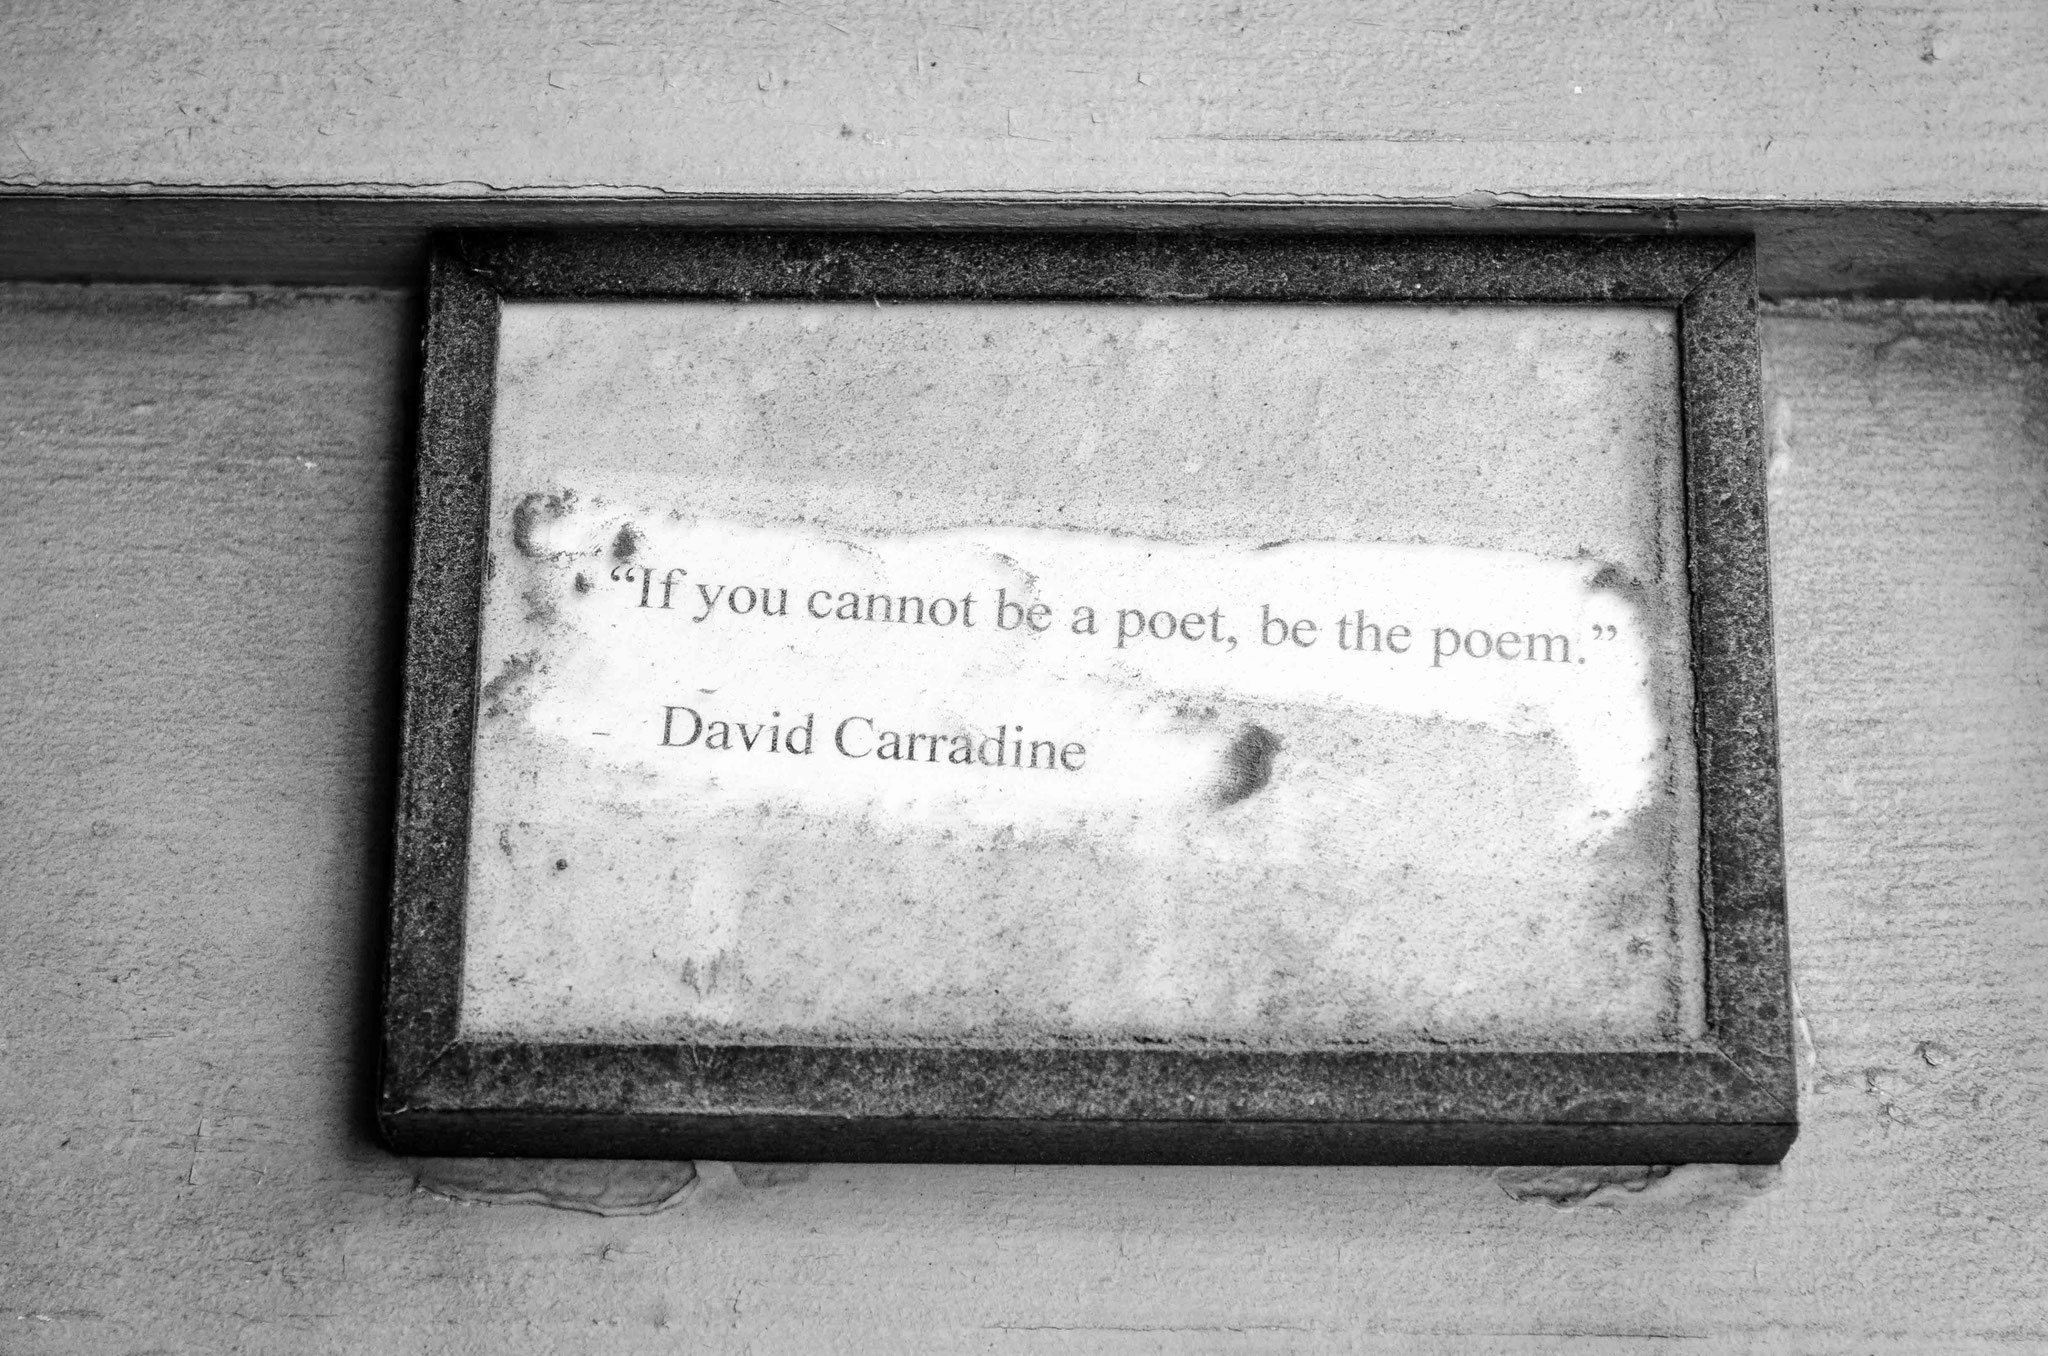 “If you cannot be a poet, be the poem.”
– David Carradine